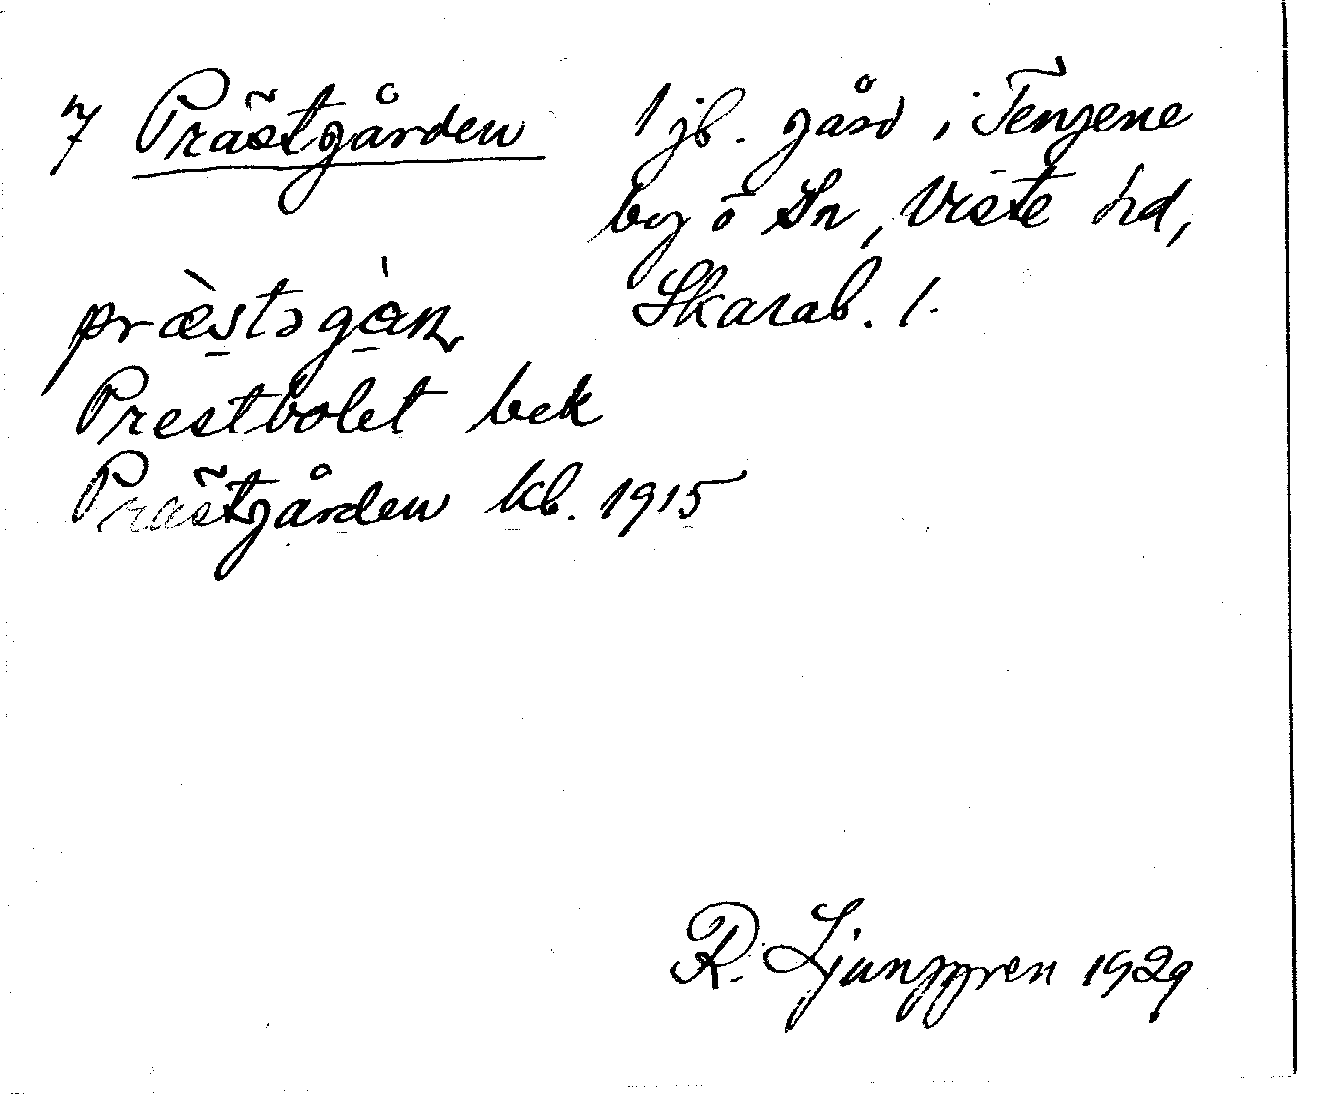 7 Prästgården
1 jb. gård i Tengene
by o Sn, Viste hd,
Skarab. l.
Prestbolet bek
Prästgården kb. 1915
R. Ljunggren 1929